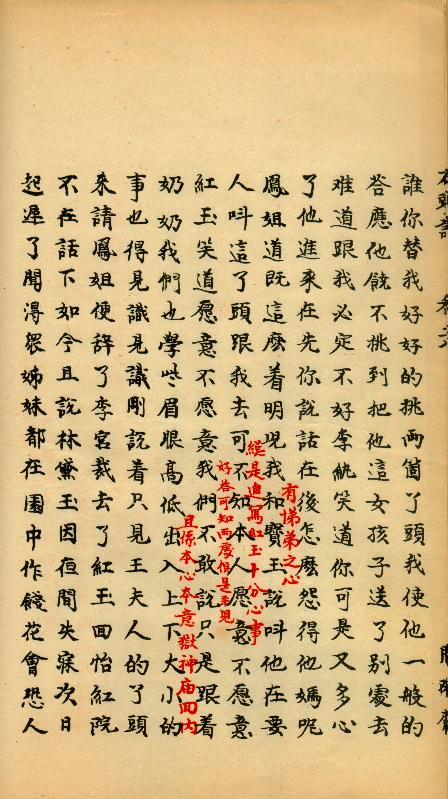 誰你替我好好的挑兩箇了頭我使他一般的
答應他饒不挑到把他這女孩子送了別處去
难道跟我必定不好李紈笑道你可是又多心
了他進來在先你說話在後怎庅怨得他媽呢
鳳姐道既這庅着明児我和寶玉說呌他在要
人呌這了頭跟我去可不知本人愿意不愿意
紅玉笑道愿意不愿意我們不敢說只是跟着
奶奶我們也學些眉眼高低出入上下大小的
事也得見識見識剛說着只見王夫人的了頭
來請鳳姐便辞了李宮裁去了紅玉回怡紅院
不在話下如今且說林黛玉因夜間失寐次日
起遲了聞得衆姊妹都在園中作餞花會恐人
有悌弟之心
総是追寫紅玉十分心事
好荅可知兩處俱是主児
且係本心本意獄神庙回内